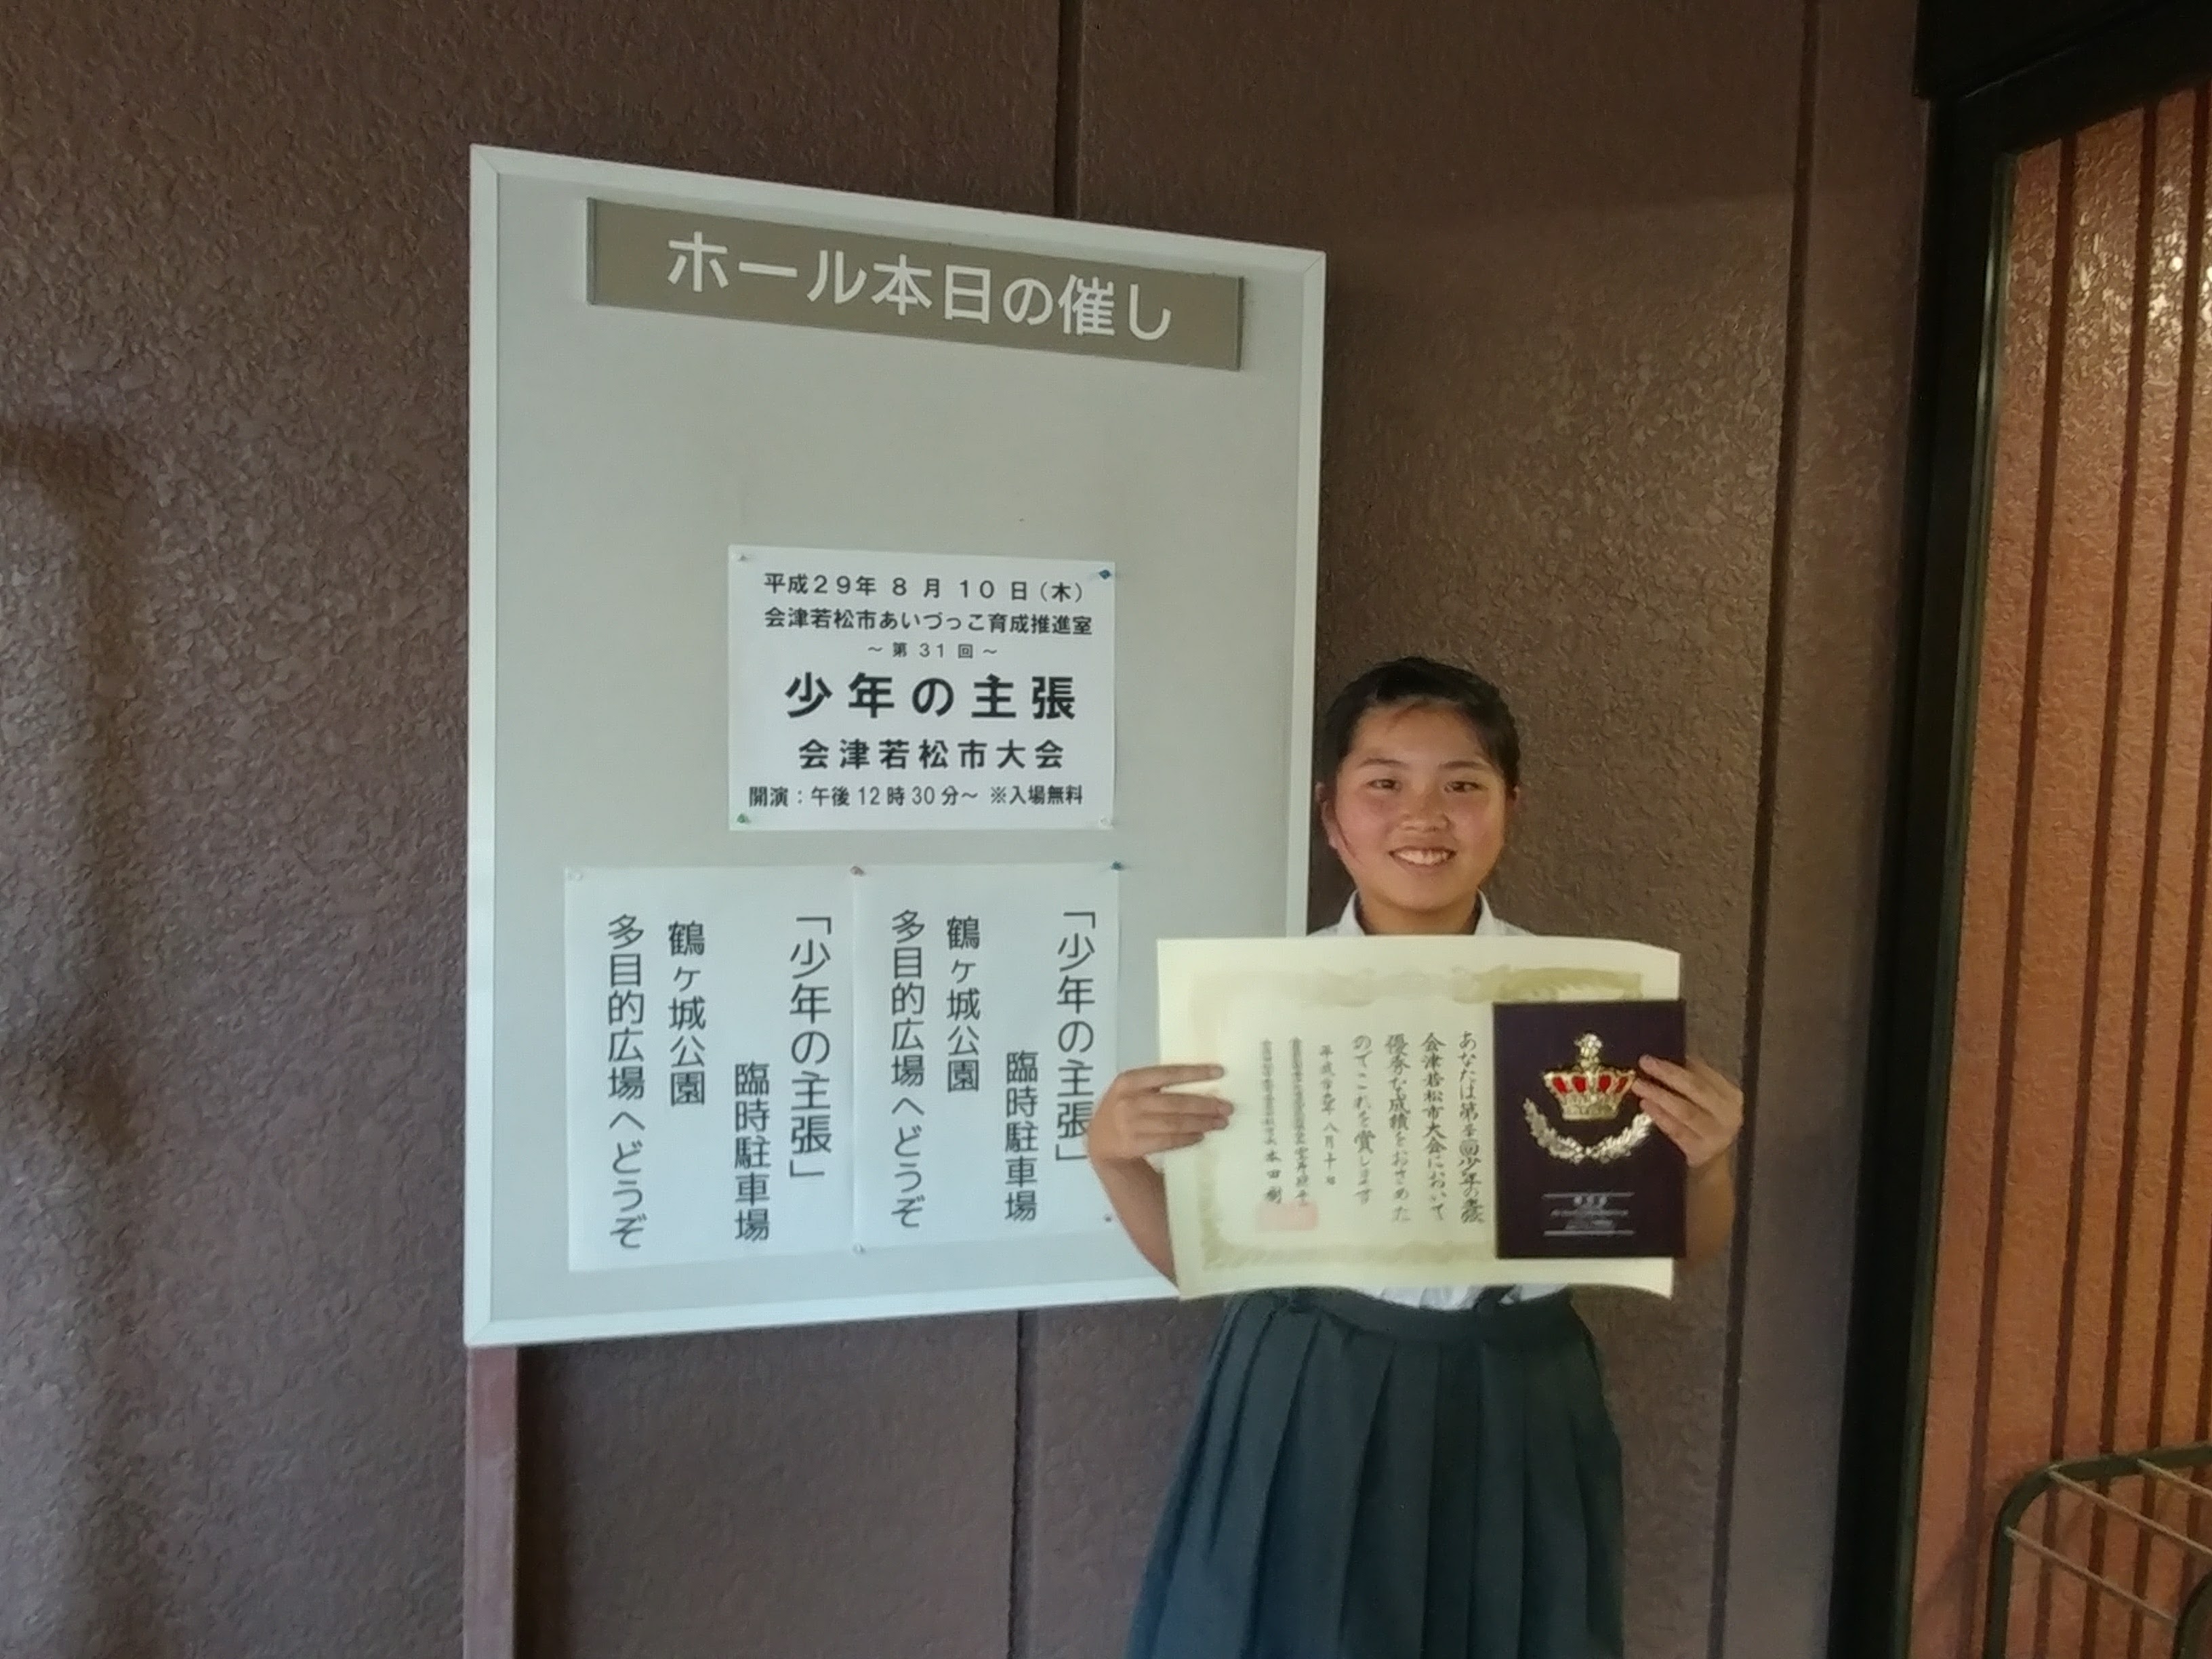 ホール本日の催し
平成29年 8 月 10 日（木）
会津若松市あいづっこ育成推進室
～ 第 31 回 ～
少年の主張
会津若松市大会
開演：午後 12 時 30 分～ ※入場無料
「少年の主張」
臨時駐車場
鶴ヶ城公園
多目的広場へどうぞ
「少年の主張」
臨時駐車場
鶴ヶ城公園
多目的広場へどうぞ
あなたは第 回少年の主張
会津若松市大会において
優秀な成績をおさめた
のでこれを賞します
平成 九年八月十日